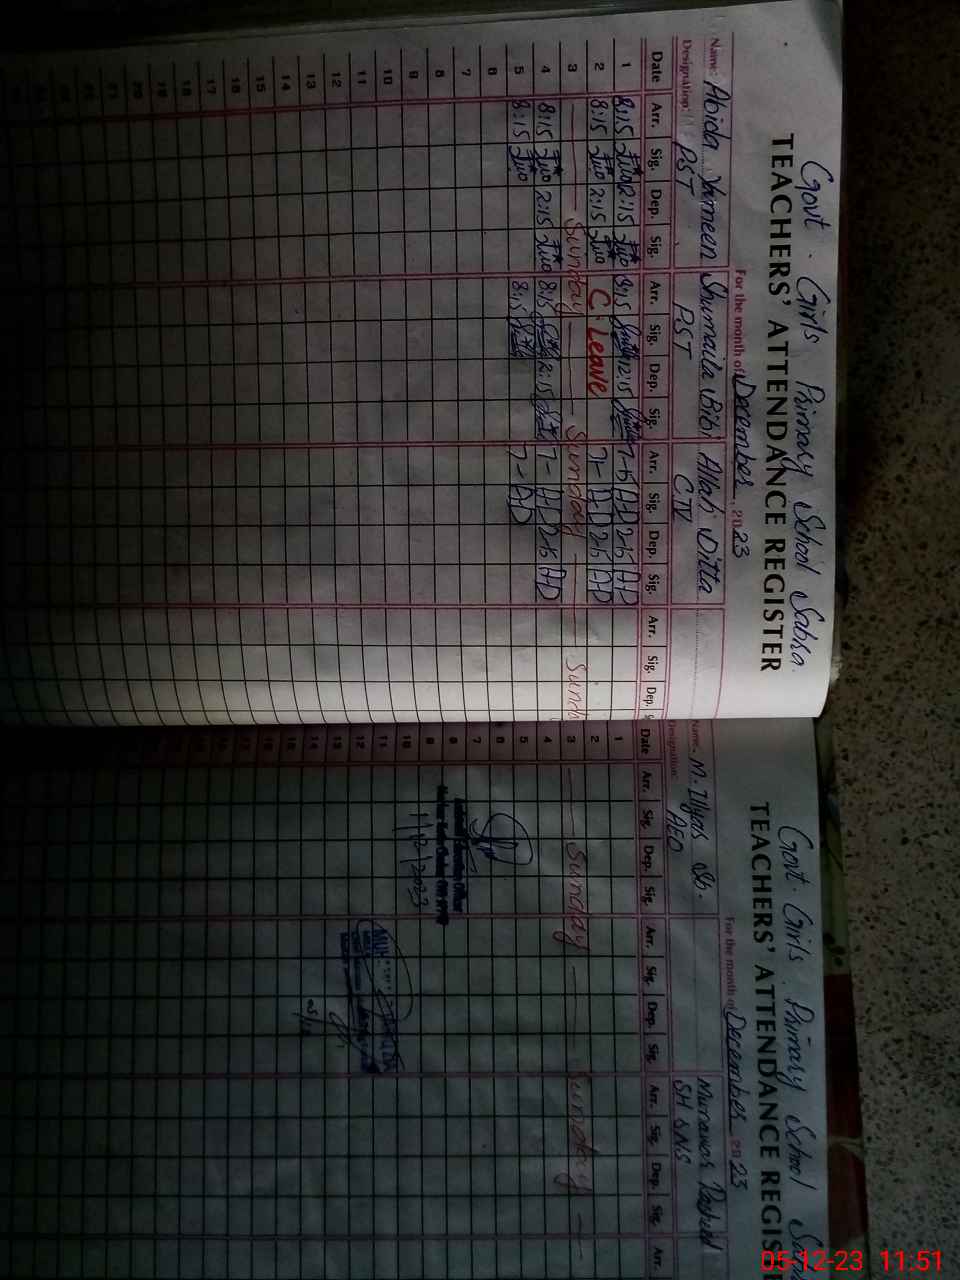 Govt. Girls Primary School Sabra.
TEACHERS' ATTENDANCE REGISTER
For the month of December 2023
Name: Abida Yasmeen Shumaila Bibi Allah Ditta
Designation: PST PST CIV
Date Arr. Sig. Dep. Sig. Arr. Sig. Dep. Sig. Arr. Sig. Dep. Sig. Arr. Sig. Dep. S
1 8:15 2:15 8:15 12:15 7-15 AD 2-15 AD
2 8:15 2:15 C. Leave 7- AD 2-15 AD
3 Sunday Sunday Sund
4 8:15 2:15 8:15 2:15 7- AD 2-15 AD
5 8:15 8:15 7- AD
6
7
8
9
10
11
12
13
14
15
16
17
18
19
20
21
22
Govt. Girls. Primary School
TEACHERS' ATTENDANCE REGIS
For the month of December 2023
Name: M. Illyas Sb. Munawar Rasheed
Designation: AEO SH SNS
Date Arr. Sig. Dep. Sig. Arr. Sig. Dep. Sig. Arr. Sig. Dep. Sig. Arr.
1
2
3 Sunday Sunday
4
5
6
7
8
9
10
11
12
13
14
15
16
17
18
1/12/2023
05-12-23 11:51